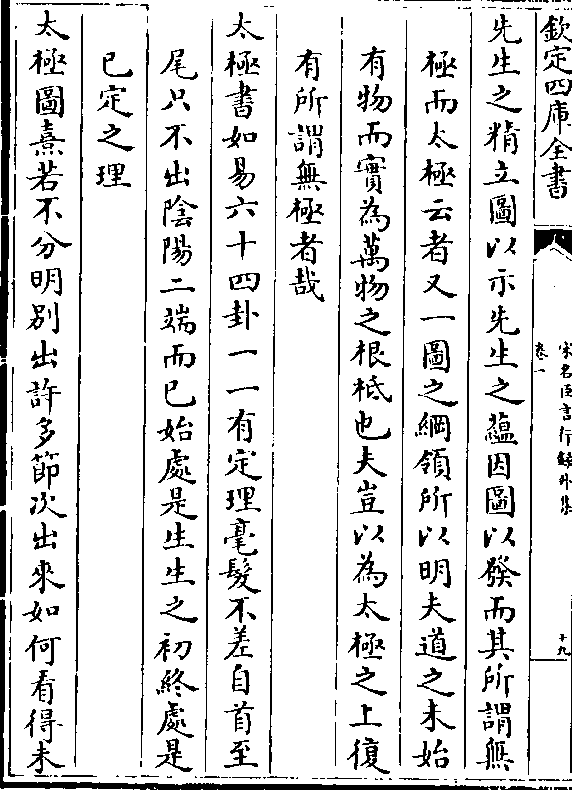 欽定四庫全書
宋名臣言行錄外集
卷一
十九
先生之精立圖以示先生之蘊因圖以發而其所謂無
極而太極云者又一圖之綱領所以明夫道之未始
有物而實為萬物之根柢也夫豈以為太極之上復
有所謂無極者哉
太極書如易六十四卦一一有定理毫髮不差自首至
尾只不出陰陽二端而已始處是生生之初終處是
已定之理
太極圖熹若不分明別出許多節次出來如何看得未